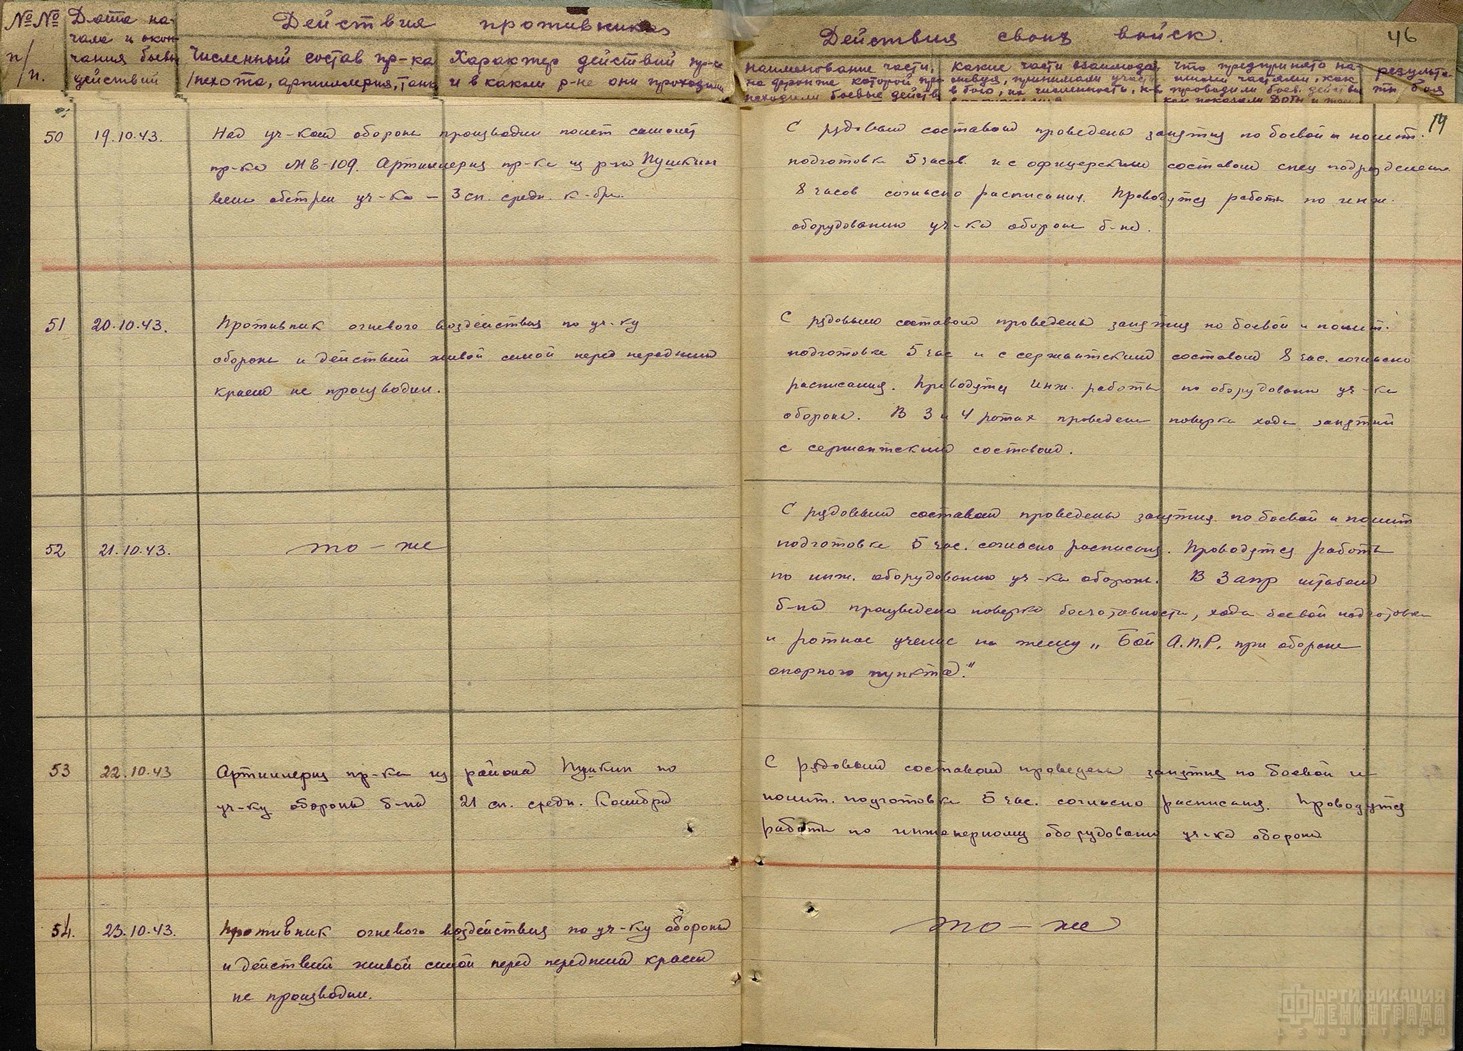 №№ п/п.
Дата начала и окончания боевых действий
Действия противника
Численный состав пр-ка /пехота, артиллерия, танки
Характер действий пр-ка и в каком р-не они проходили
Действия своих войск.
46
наименование части, на фронте которой
какие части взаимодей
что предпринято на
результаты боя
19
50
19.10.43.
Над уч-ком обороны производил полет самолет
пр-ка МЕ-109. Артиллерия пр-ка из р-на Пушкин
вела обстрел уч-ка – 3 сн. средн. к-бра.
С рядовым составом проведены занятия по боевой и полит.
подготовке 5 часов и с офицерским составом спец подразделен
8 часов согласно расписания. Проводятся работы по инж.
оборудованию уч-ка обороны б-на.
51
20.10.43.
Противник огневого воздействия по уч-ку
обороны и действий живой силой перед передним
краем не производил.
С рядовым составом проведены занятия по боевой и полит.
подготовке 5 час и с сержантским составом 8 час. согласно
расписания. Проводятся инж. работы по оборудованию уч-ка
обороны. В 3 и 4 ротах проведена поверка хода занятий
с сержантским составом.
52
21.10.43.
то – же
С рядовым составом проведены занятия по боевой и полит
подготовке 5 час. согласно расписания. Проводятся работы
по инж. оборудованию уч-ка обороны. В 3 апр штабом
б-на произведена поверка боеготовности, хода боевой подготовки
и ротное учение на тему „Бой А.П.Р. при обороне
опорного пункта."
53
22.10.43
Артиллерия пр-ка из района Пушкин по
уч-ку обороны б-на 21 сн. средн. Калибра
С рядовым составом проведены занятия по боевой и
полит. подготовке 5 час. согласно расписания. Проводятся
работы по инженерному оборудованию уч-ка обороны
54.
23.10.43.
Противник огневого воздействия по уч-ку обороны
и действий живой силой перед передним краем
не производил.
то – же
ФОРТИФИКАЦИЯ
ЛЕНИНГРАДА